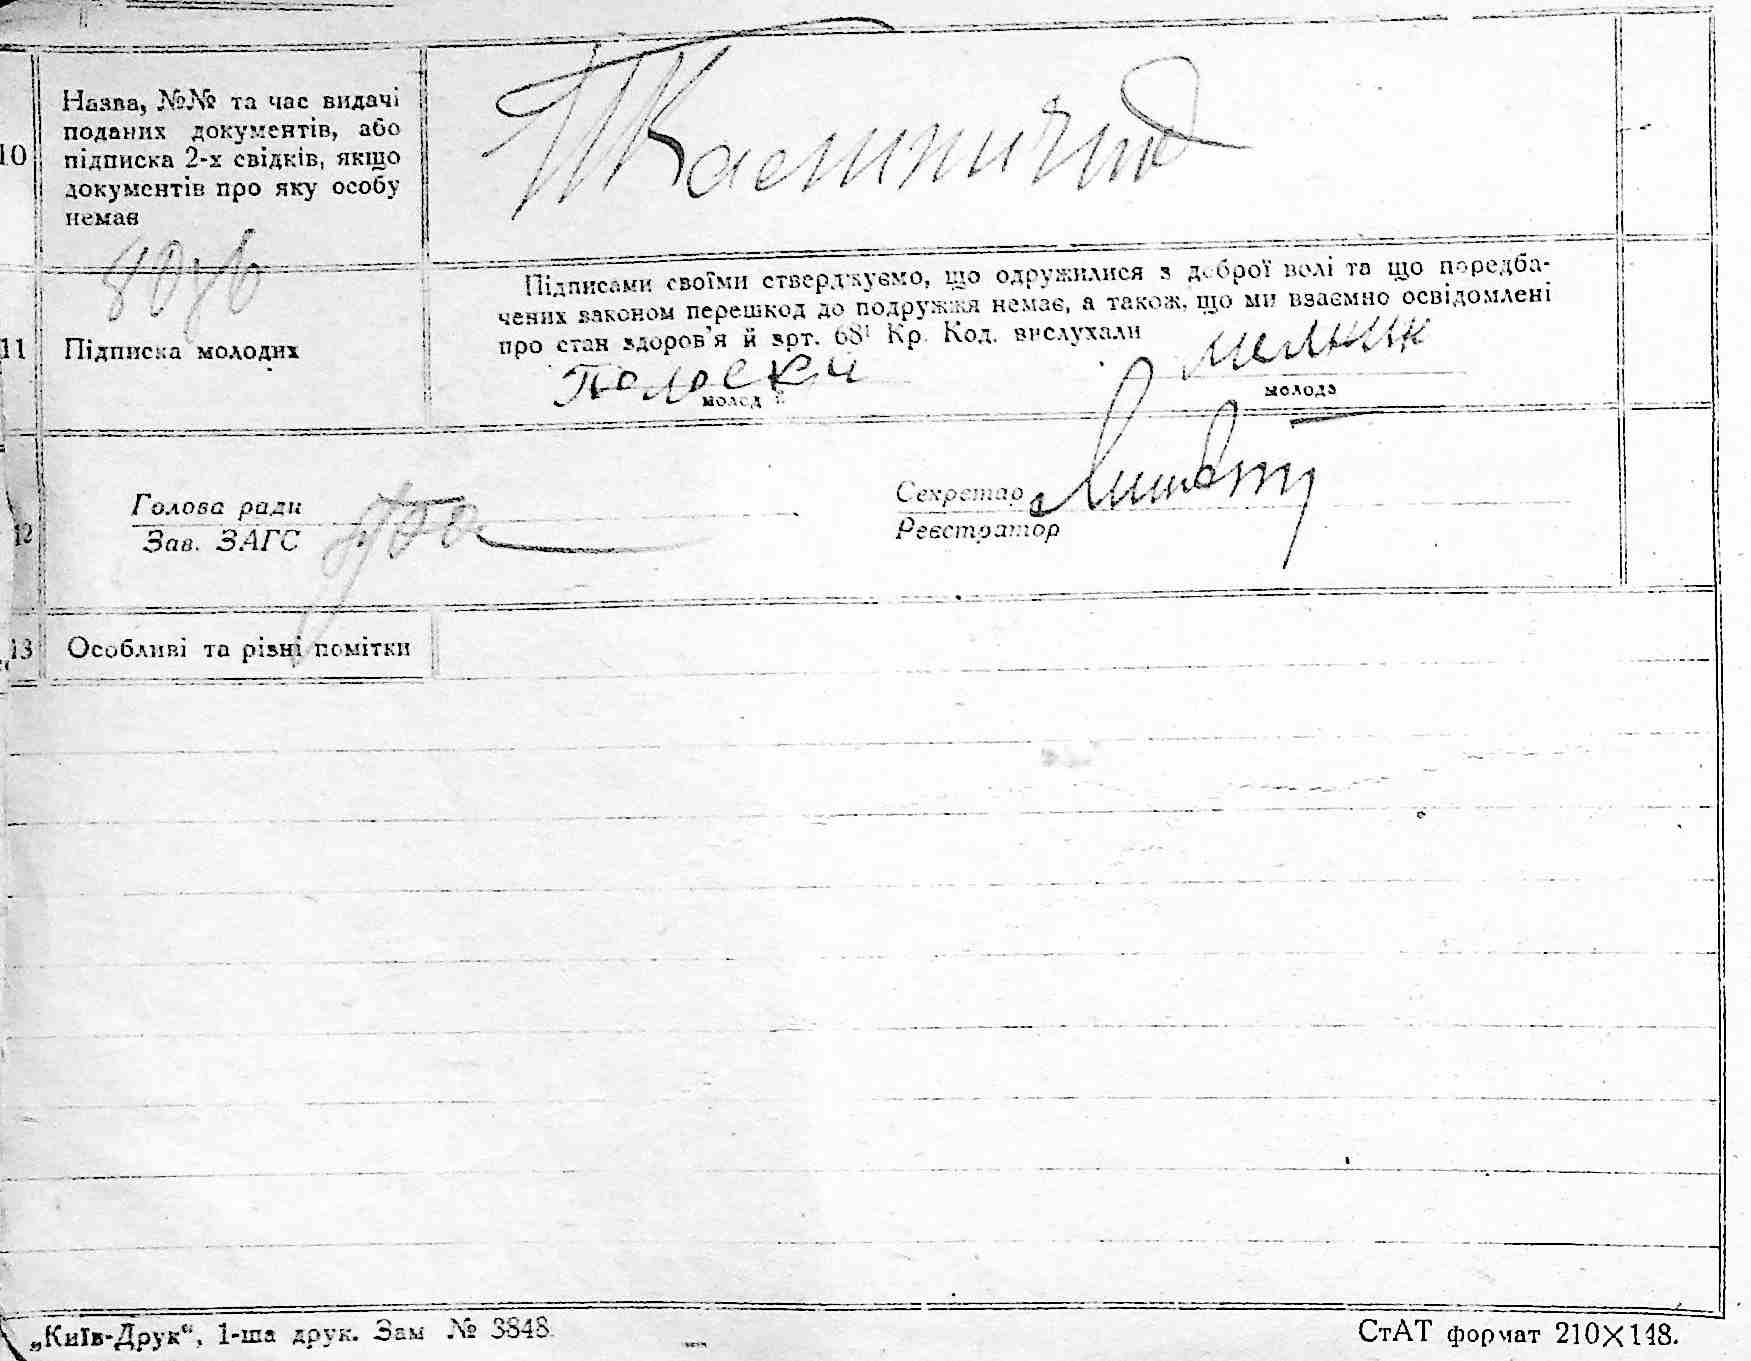 10
Назва, №№ та час видачі
поданих документів, або
підписка 2-х свідків, якщо
документів про яку особу
немає
11
Підписка молодих
Підписами своїми стверджуємо, що одружилися з доброї волі та що передба-
чених законом перешкод до подружжя немає, а також, що ми взаємно освідомлені
про стан здоров'я й арт. 68¹ Кр. Код. вислухали
молодий
мельник
молода
12
Голова ради
Зав. ЗАГС
Секретар
Реєстратор
13
Особливі та різні помітки
„Київ-Друк“, 1-ша друк. Зам № 3848.
СтАТ формат 210×148.